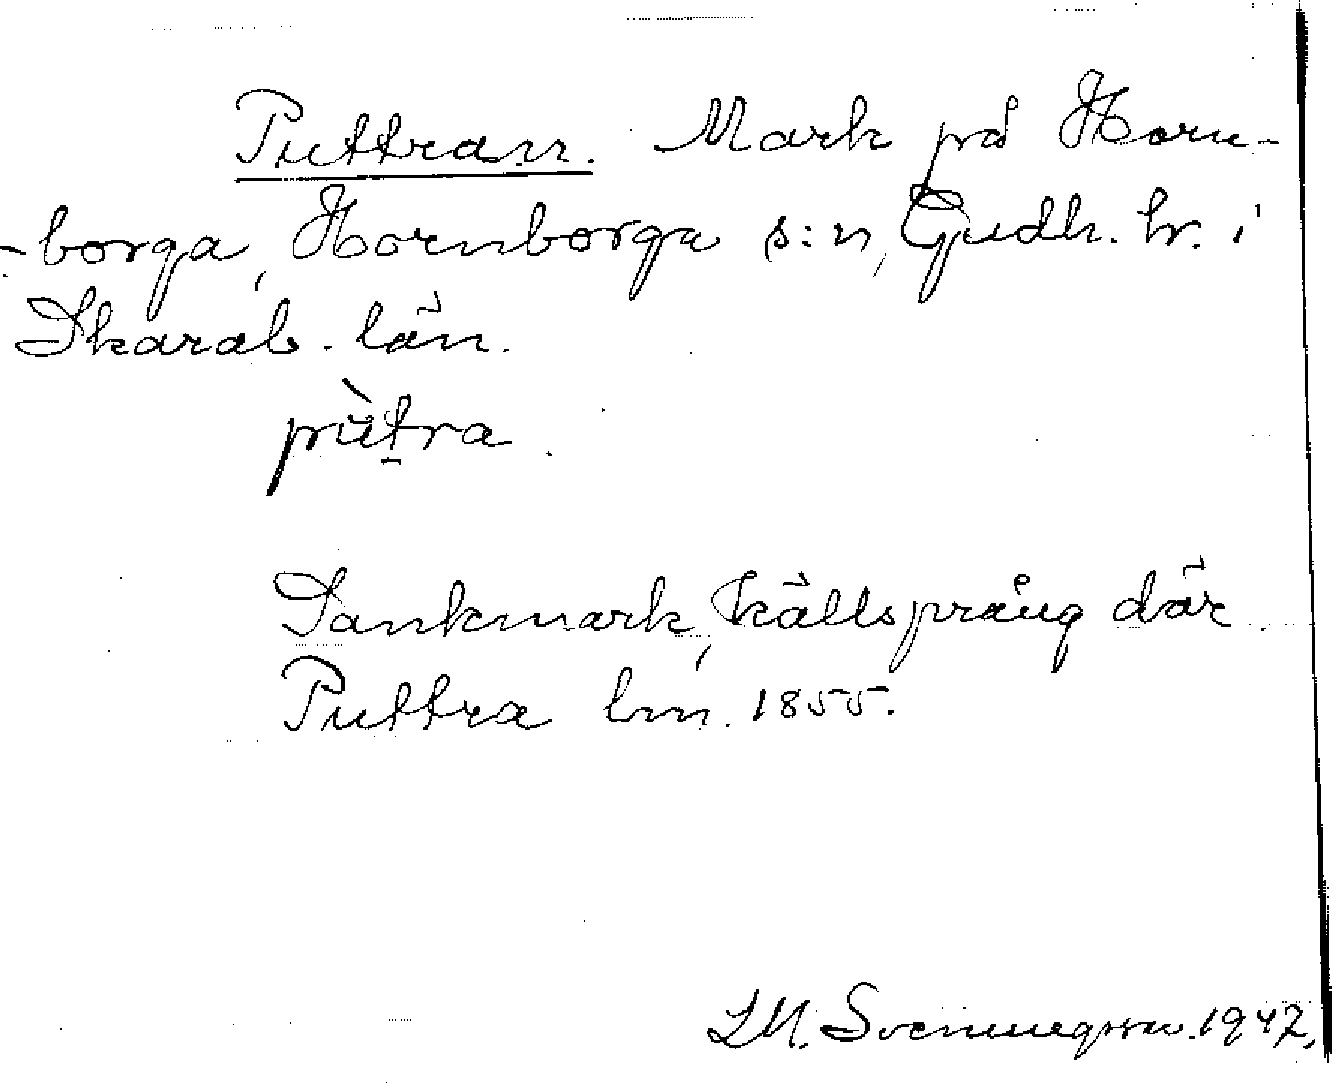 Puttran. Mark på Horn-
-borga, Hornborga s:n, Gudh. hr. i
Skarab. län.
pùt̠ra.
Sankmark, källsprång där.
Puttra lm. 1855.
LM. Svenungsson. 1947.